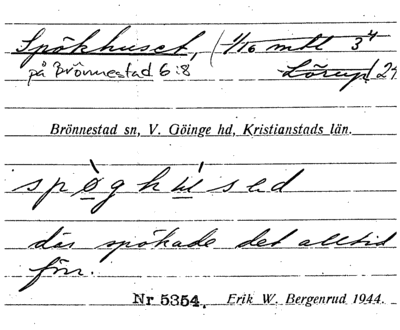 Spökhuset, (1/16 mtl 3⁴
på Brönnestad 6:8 Lörup) 24
Brönnestad sn, V. Göinge hd, Kristianstads län.
spøghusəd
där spökade det alltid
förr.
Nr 5354. Erik W. Bergenrud 1944.